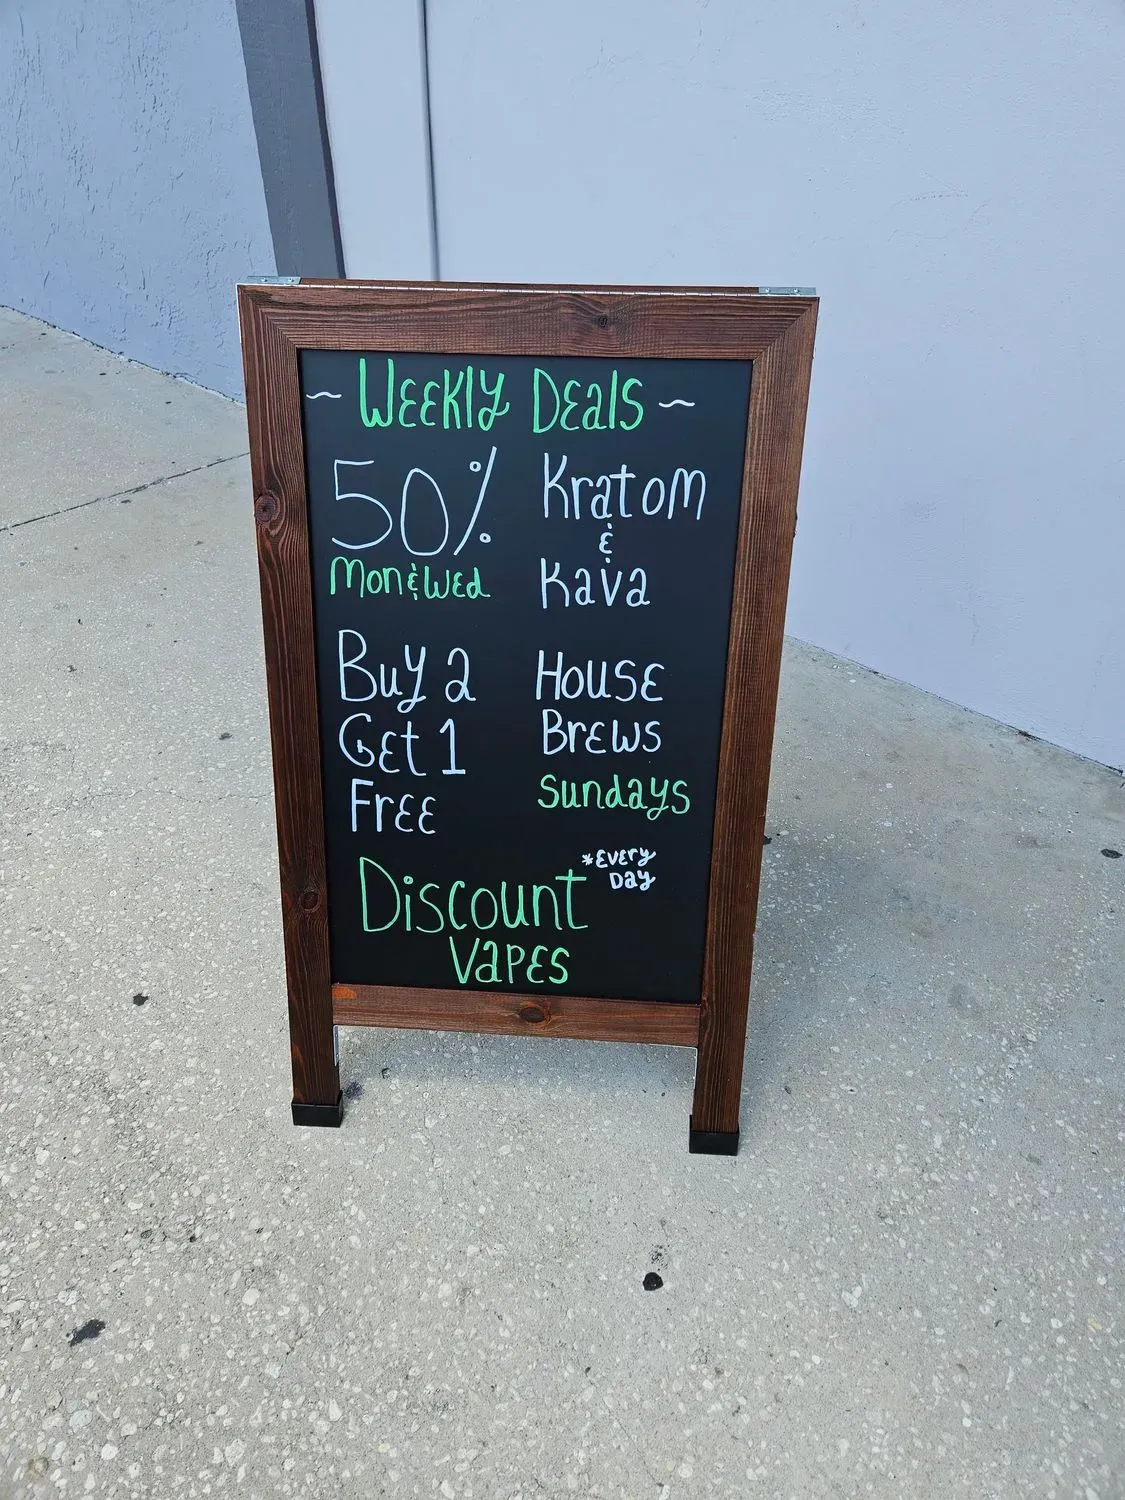 ~ Weekly Deals ~
50%
Mon & Wed
Kratom
&
Kava
Buy 2
Get 1
Free
House
Brews
Sundays
Discount
Vapes
*Every
Day